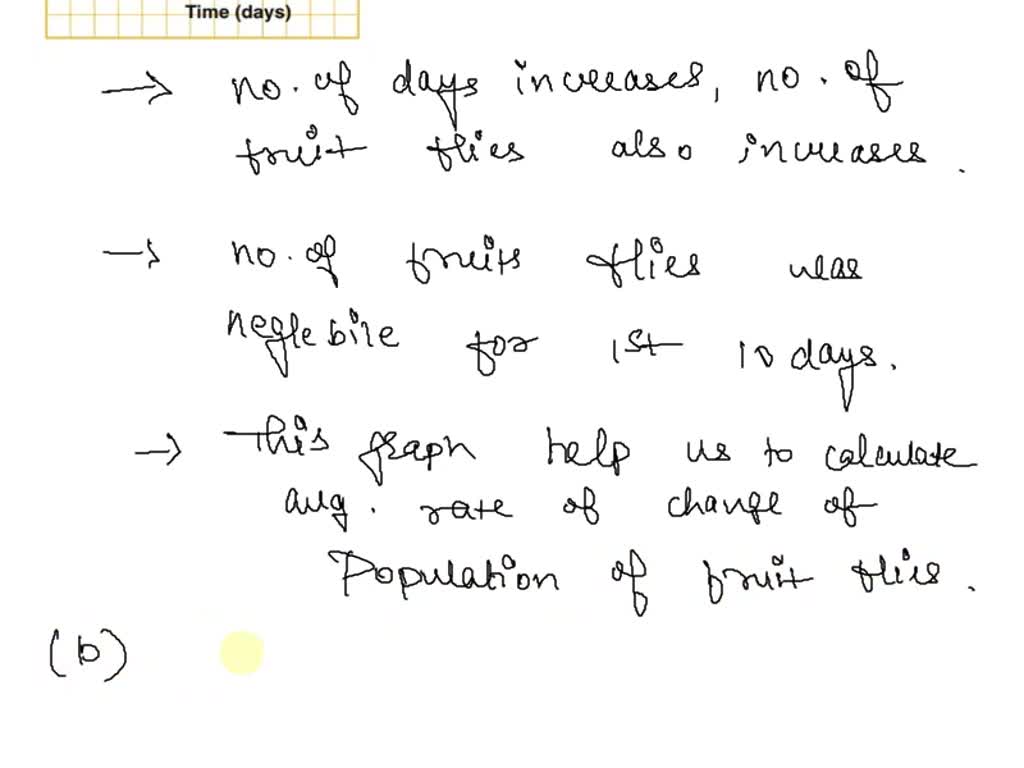 Time (days)
→ no. of days increases, no. of
fruit flies also increases.
→ no. of fruits flies was
neglebile for 1st 10 days.
→ This graph help us to calculate
avg. rate of change of
Population of fruit flies.
(b)